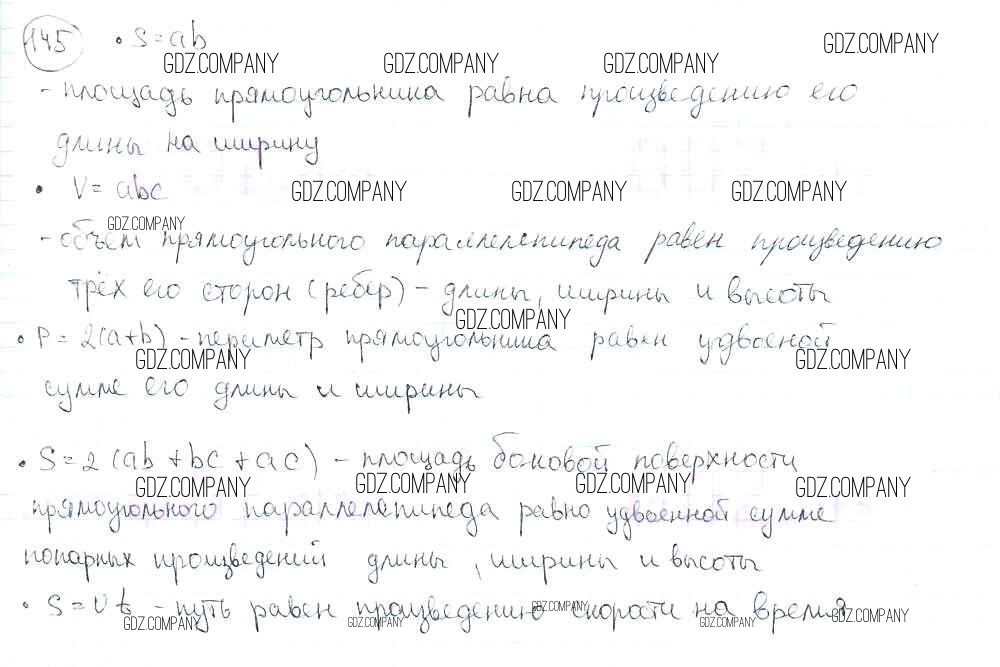 145 • S = ab
GDZ.COMPANY GDZ.COMPANY GDZ.COMPANY GDZ.COMPANY
- площадь прямоугольника равна произведению его
длины на ширину
• V = abc GDZ.COMPANY GDZ.COMPANY GDZ.COMPANY
GDZ.COMPANY
- объем прямоугольного параллелепипеда равен произведению
трёх его сторон (ребер) - длины, ширины и высоты
GDZ.COMPANY
• P = 2(a+b) - периметр прямоугольника равен удвоеной
GDZ.COMPANY GDZ.COMPANY GDZ.COMPANY GDZ.COMPANY
сумме его длины и ширины
• S = 2 (ab + bc + ac) - площадь боковой поверхности
GDZ.COMPANY GDZ.COMPANY GDZ.COMPANY GDZ.COMPANY
прямоугольного параллелепипеда равно удвоенной сумме
попарных произведений длины, ширины и высоты
• S = vt - путь равен произведению скорости на время
GDZ.COMPANY GDZ.COMPANY GDZ.COMPANY GDZ.COMPANY GDZ.COMPANY